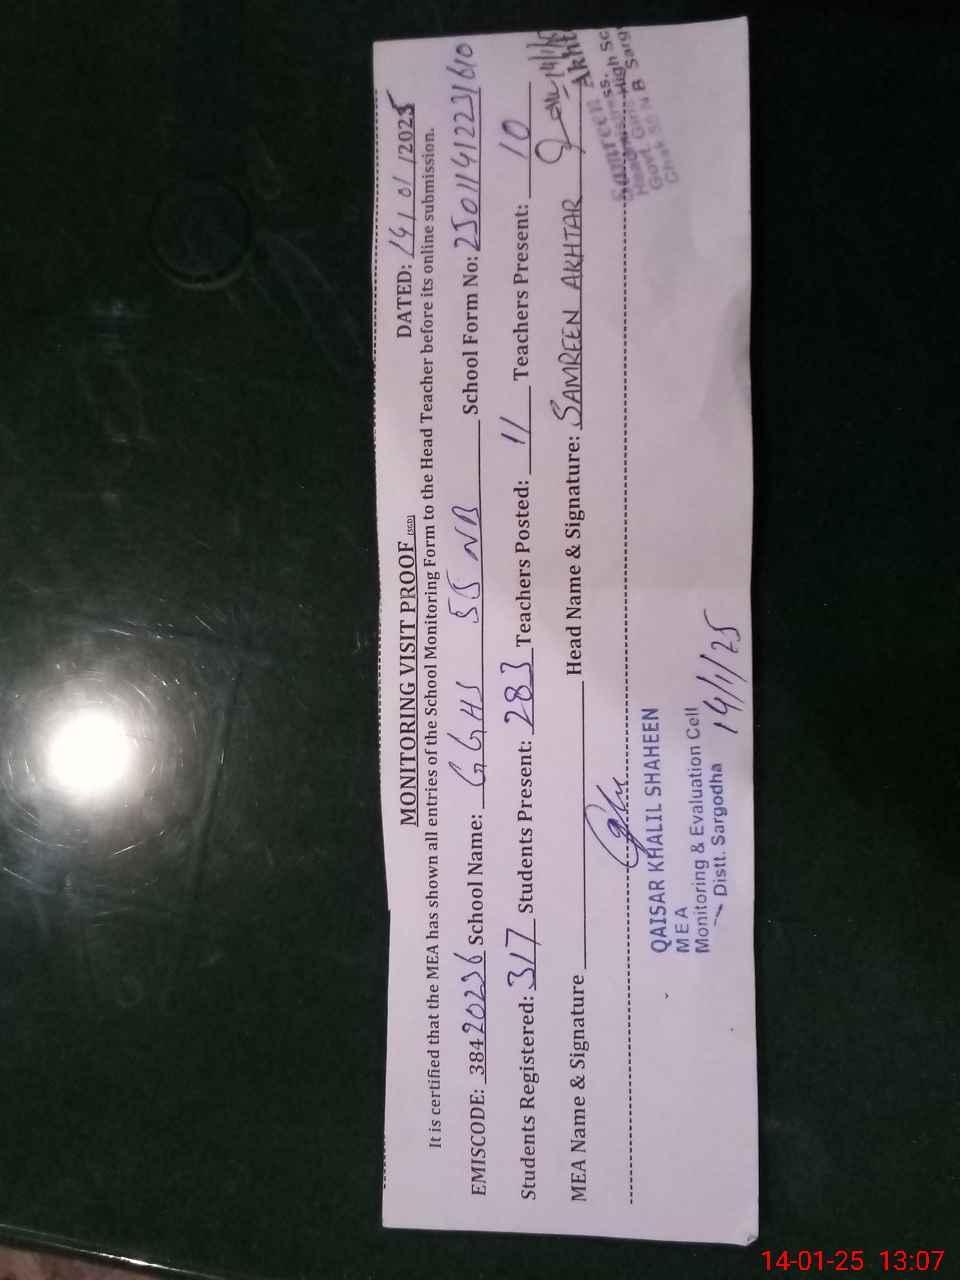 MONITORING VISIT PROOF (SGD) DATED: 14/01/2025
It is certified that the MEA has shown all entries of the School Monitoring Form to the Head Teacher before its online submission.
EMISCODE: 38420236 School Name: GGHS 55 NB School Form No: 25011412231610
Students Registered: 317 Students Present: 283 Teachers Posted: 11 Teachers Present: 10
MEA Name & Signature Head Name & Signature: SAMREEN AKHTAR 14/1/25
Samreen Akht
SS.
High Sc
Govt. NB Sarg
Chak
QAISAR KHALIL SHAHEEN
MEA
Monitoring & Evaluation Cell
Distt. Sargodha 14/1/25
14-01-25 13:07